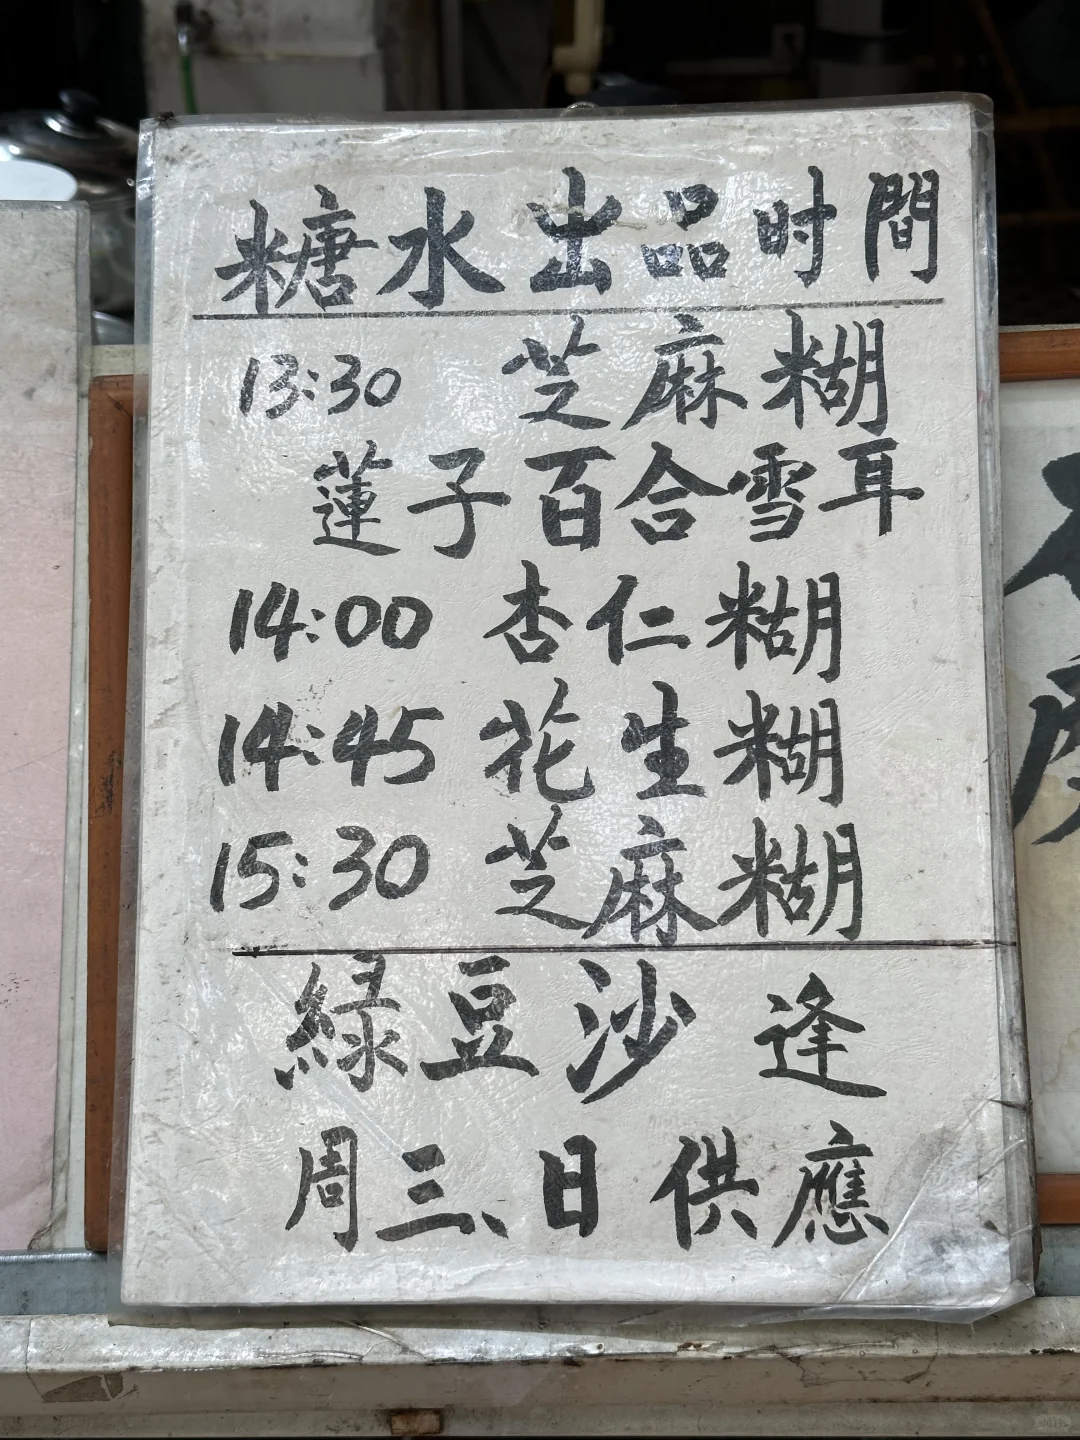 糖水出品时間
13:30 芝麻糊
蓮子百合雪耳
14:00 杏仁糊
14:45 花生糊
15:30 芝麻糊
綠豆沙 逢
周三、日供應